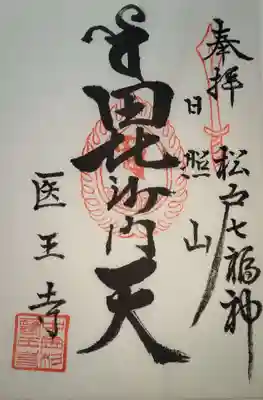 奉拝
松戸七福神
日照山
毘沙門天
医王寺